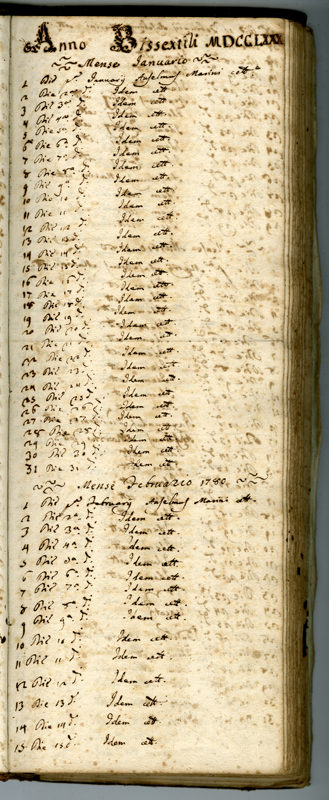 Anno Bissextili MDCCLXXX
Mense Januario
1 Die pa. January Anselmus Marini cett.
2 Die 2a d. Idem cett.
3 Die 3a d. Idem cett.
4 Die 4a d. Idem cett.
5 Die 5a d. Idem cett.
6 Die 6a d. Idem cett.
7 Die 7a d. Idem cett.
8 Die 8a d. Idem cett.
9 Die 9a d. Idem cett.
10 Die 10 d. Idem cett.
11 Die 11 d. Idem cett.
12 Die 12 d. Idem cett.
13 Die 13 d. Idem cett.
14 Die 14 d. Idem cett.
15 Die 15 d. Idem cett.
16 Die 16 d. Idem cett.
17 Die 17 d. Idem cett.
18 Die 18 d. Idem cett.
19 Die 19 d. Idem cett.
20 Die 20 d. Idem cett.
21 Die 21 d. Idem cett.
22 Die 22 d. Idem cett.
23 Die 23 d. Idem cett.
24 Die 24 d. Idem cett.
25 Die 25 d. Idem cett.
26 Die 26 d. Idem cett.
27 Die 27 d. Idem cett.
28 Die 28 d. Idem cett.
29 Die 29 d. Idem cett.
30 Die 30 d. Idem cett.
31 Die 31 d. Idem cett.
Mense Februario 1780
1 Die pa. February Anselmus Marini cett.
2 Die 2a d. Idem cett.
3 Die 3a d. Idem cett.
4 Die 4a d. Idem cett.
5 Die 5a d. Idem cett.
6 Die 6a d. Idem cett.
7 Die 7a d. Idem cett.
8 Die 8a d. Idem cett.
9 Die 9a d. Idem cett.
10 Die 10 d. Idem cett.
11 Die 11 d. Idem cett.
12 Die 12 d. Idem cett.
13 Die 13 d. Idem cett.
14 Die 14 d. Idem cett.
15 Die 15 d. Idem cett.